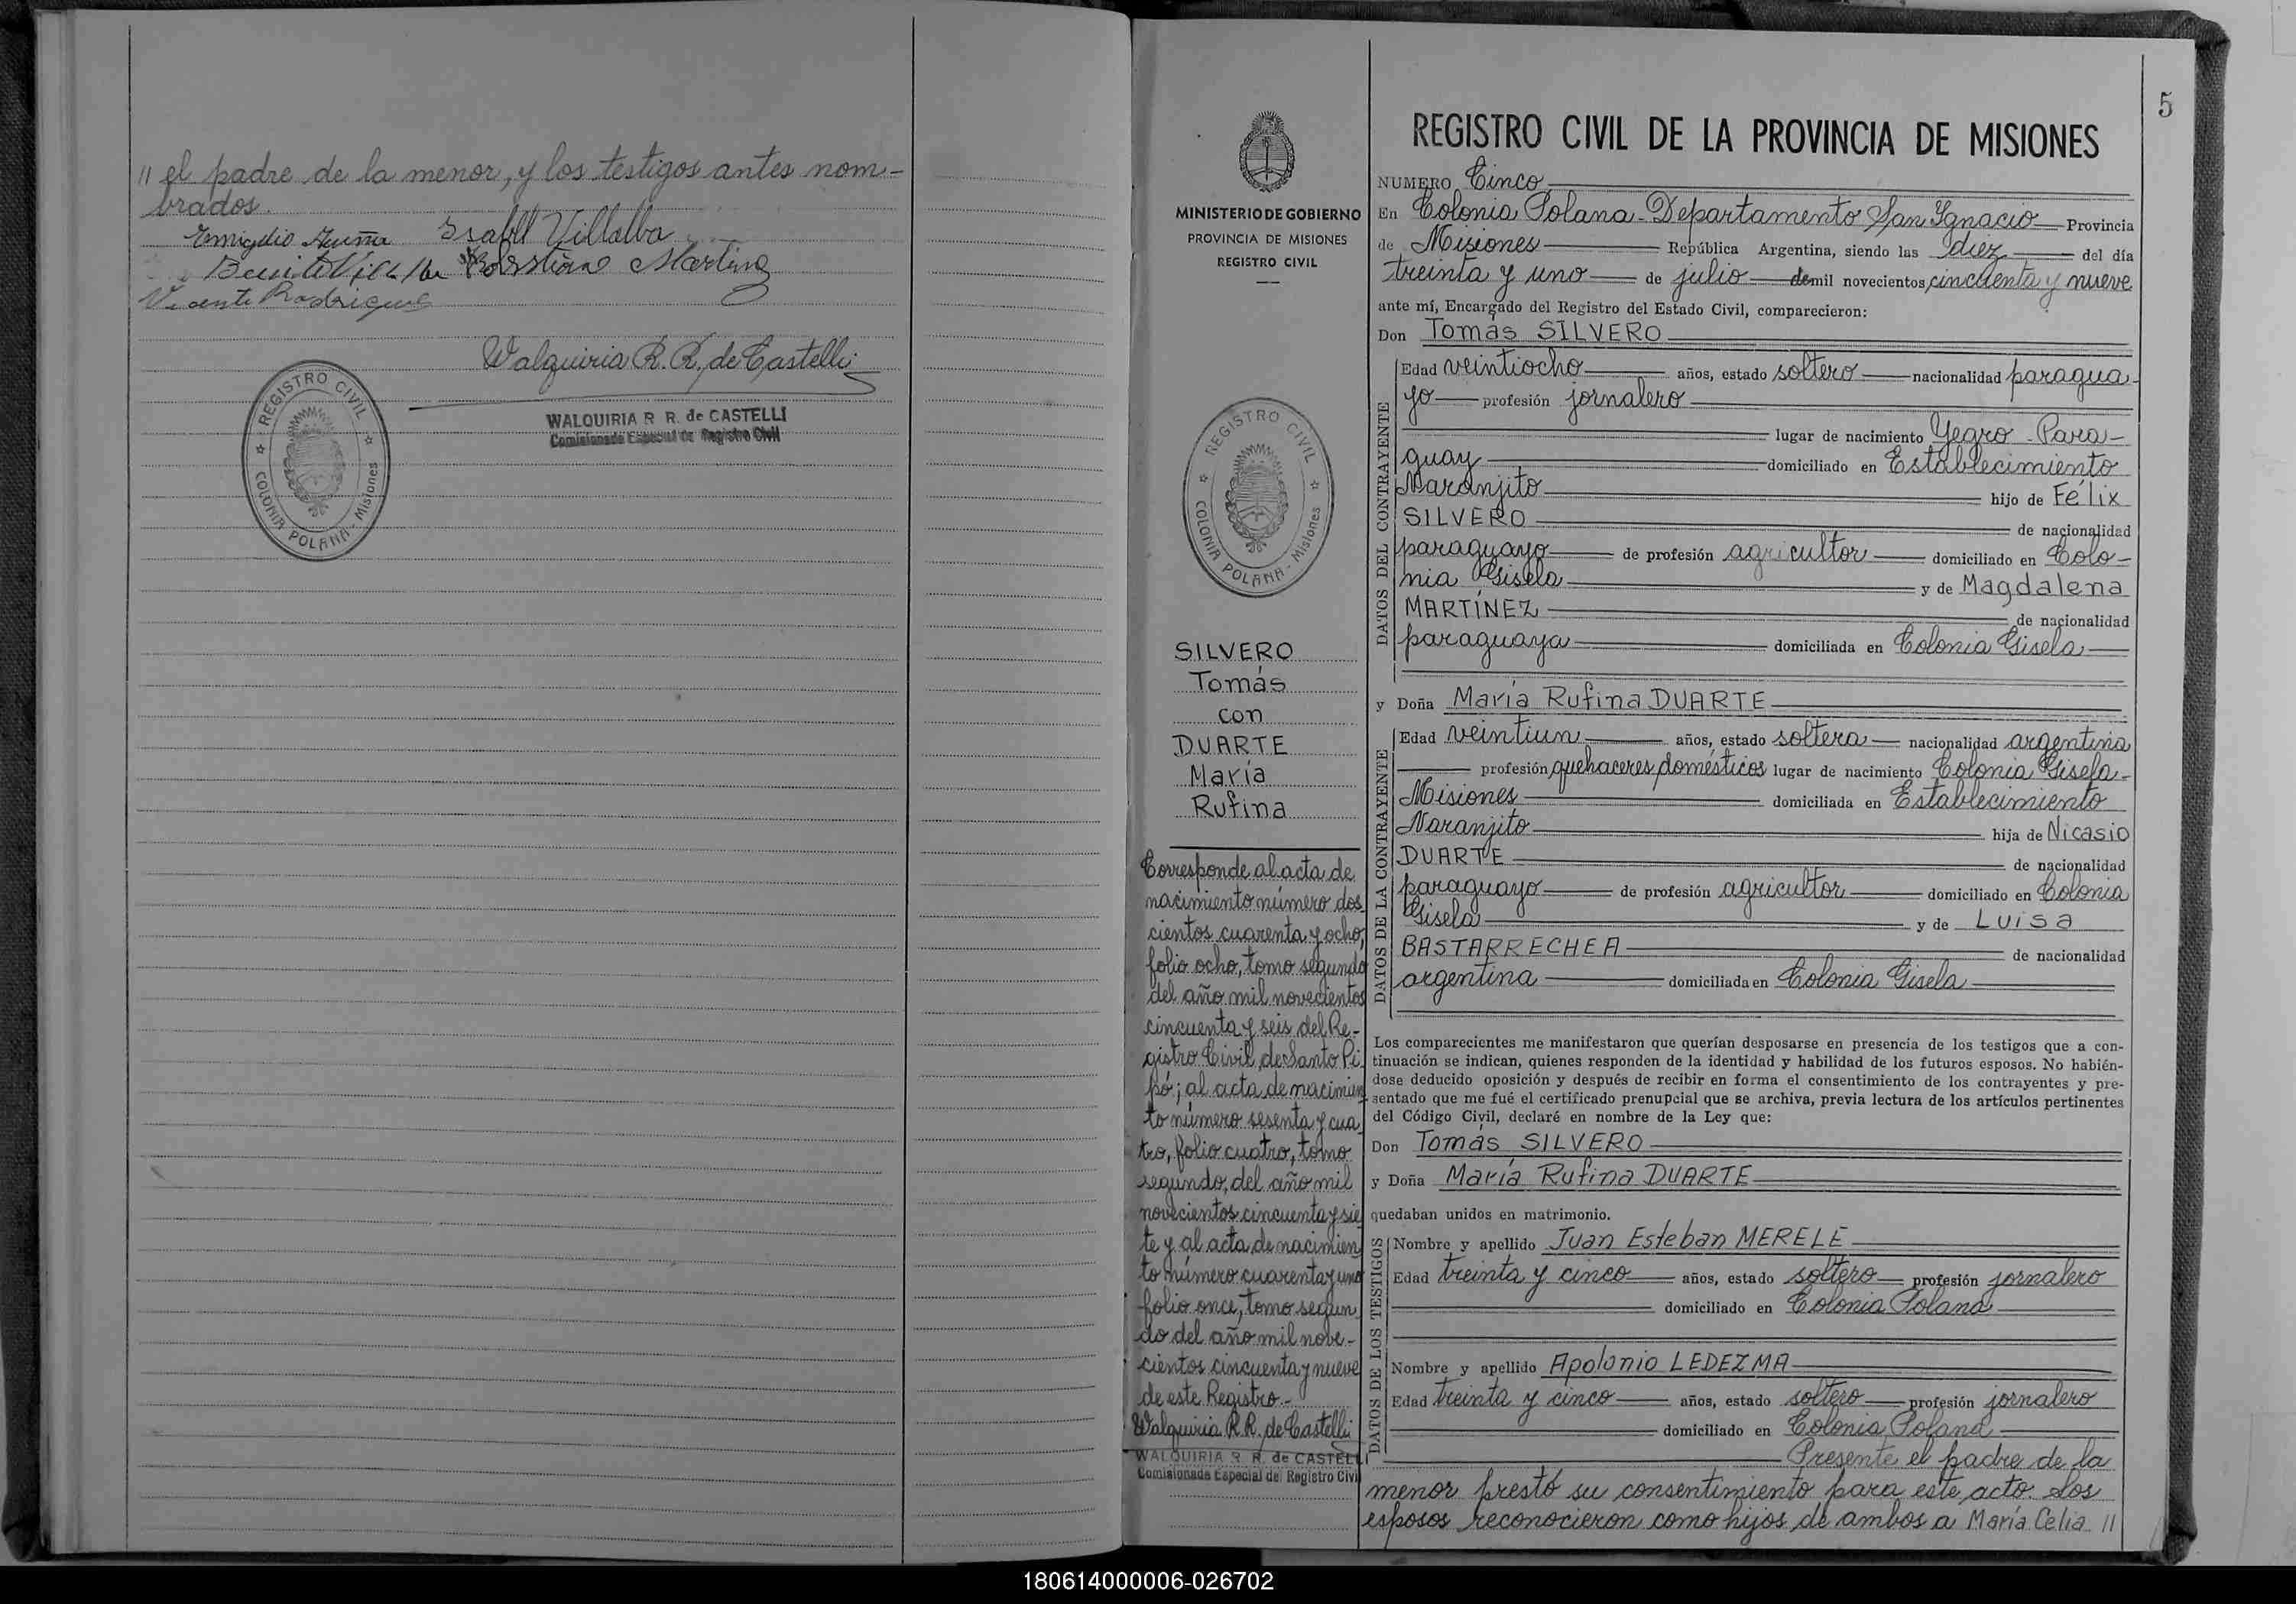 // el padre de la menor, y los testigos antes nom-
brados.
Emigdio Acuña Isabel Villalba
Benito Villalba Martinez
Vicente Rodriguez
Walquiria R. R. de Castelli
WALQUIRIA R R. de CASTELLI
Comisionada Especial de Registro Civil
REGISTRO CIVIL
COLONIA POLANA - Misiones
5
MINISTERIO DE GOBIERNO
PROVINCIA DE MISIONES
REGISTRO CIVIL
REGISTRO CIVIL
COLONIA POLANA - Misiones
SILVERO
Tomás
con
DUARTE
María
Rufina
Corresponde al acta de
nacimiento número dos
cientos cuarenta y ocho,
folio ocho, tomo segundo
del año mil novecientos
cincuenta y seis del Re-
gistro Civil de Santo Pi
pó; al acta de nacimien
to número sesenta y cua
tro, folio cuatro, tomo
segundo, del año mil
novecientos cincuenta y sie
te y al acta de nacimien
to número cuarenta y uno
folio once, tomo segun
do del año mil nove-
cientos cincuenta y nueve
de este Registro.-
Walquiria R. R. de Castelli
WALQUIRIA R. R. de CASTELLI
Comisionada Especial del Registro Civil
REGISTRO CIVIL DE LA PROVINCIA DE MISIONES
NUMERO Cinco
En Colonia Polana - Departamento San Ignacio Provincia
de Misiones República Argentina, siendo las diez del día
treinta y uno de julio de mil novecientos cincuenta y nueve
ante mí, Encargado del Registro del Estado Civil, comparecieron:
Don Tomás SILVERO
DATOS DEL CONTRAYENTE
Edad veintiocho años, estado soltero nacionalidad paragua-
yo profesión jornalero
lugar de nacimiento Yegro - Para-
guay domiciliado en Establecimiento
Naranjito hijo de Félix
SILVERO de nacionalidad
paraguayo de profesión agricultor domiciliado en Colo-
nia Gisela y de Magdalena
MARTÍNEZ de nacionalidad
paraguaya domiciliada en Colonia Gisela
y Doña María Rufina DUARTE
DATOS DE LA CONTRAYENTE
Edad veintiun años, estado soltera nacionalidad argentina
profesión quehaceres domésticos lugar de nacimiento Colonia Gisela-
Misiones domiciliada en Establecimiento
Naranjito hija de Nicasio
DUARTE de nacionalidad
paraguayo de profesión agricultor domiciliado en Colonia
Gisela y de Luisa
BASTARRECHEA de nacionalidad
argentina domiciliada en Colonia Gisela
Los comparecientes me manifestaron que querían desposarse en presencia de los testigos que a con-
tinuación se indican, quienes responden de la identidad y habilidad de los futuros esposos. No habién-
dose deducido oposición y después de recibir en forma el consentimiento de los contrayentes y pre-
sentado que me fué el certificado prenupcial que se archiva, previa lectura de los artículos pertinentes
del Código Civil, declaré en nombre de la Ley que:
Don Tomás SILVERO
y Doña María Rufina DUARTE
quedaban unidos en matrimonio.
DATOS DE LOS TESTIGOS
Nombre y apellido Juan Esteban MERELE
Edad treinta y cinco años, estado soltero profesión jornalero
domiciliado en Colonia Polana
Nombre y apellido Apolonio LEDEZMA
Edad treinta y cinco años, estado soltero profesión jornalero
domiciliado en Colonia Polana
Presente el padre de la
menor prestó su consentimiento para este acto. Los
esposos reconocieron como hijos de ambos a María Celia //
180614000006-026702